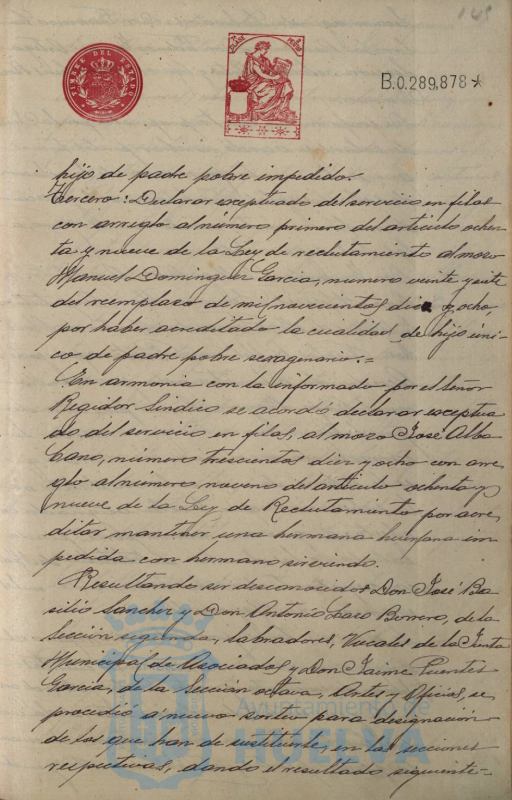 145
TIMBRE DEL ESTADO
B.0.289,878*
hijo de padre pobre impedido.
Tercero: Declarar exceptuado del servicio en filas
con arreglo al número primero del artículo ochen
ta y nueve de la Ley de reclutamiento al mozo
Manuel Dominguez Garcia, número veinte y siete
del reemplazo de mil novecientos diez y ocho,
por haber acreditado la cualidad de hijo úni-
co de padre pobre sexagenario.=
En armonia con lo informado por el Señor
Regidor Sindico se acordó declarar exceptua
do del servicio en filas, al mozo José Alba
Cano, número trescientos diez y ocho con arre
glo al número noveno del artículo ochenta y
nueve de la Ley de Reclutamiento por acre
ditar mantener una hermana huerfana im
pedida con hermano sirviendo.
Resultando ser desconocidos Don José Ba
silio Sanchez y Don Antonio Laso Borrero, de la
Sección segunda, labradores, Vocales de la Junta
Municipal de Asociados y Don Jaime Fuentes
Garcia, de la Sección octava, Artes y Oficios, se
procedió á nuevo sorteo para designación
de los que han de sustituirle, en las secciones
respectivas, dando el resultado siguiente=
Ayuntamiento de
HUELVA